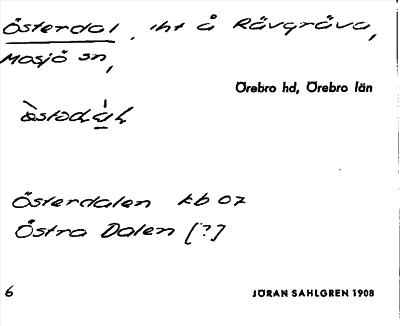 Österdal, lht å Rävgräva,
Mosjö sn,
Örebro hd, Örebro län
Österdalen kb 07
Östra Dalen [?]
6 JÖRAN SAHLGREN 1908